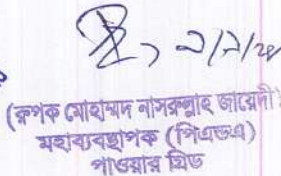 (রুপক মোহাম্মদ নাসরুল্লাহ জায়েদী)
মহাব্যবস্থাপক (পিএন্ডএ)
পাওয়ার গ্রিড